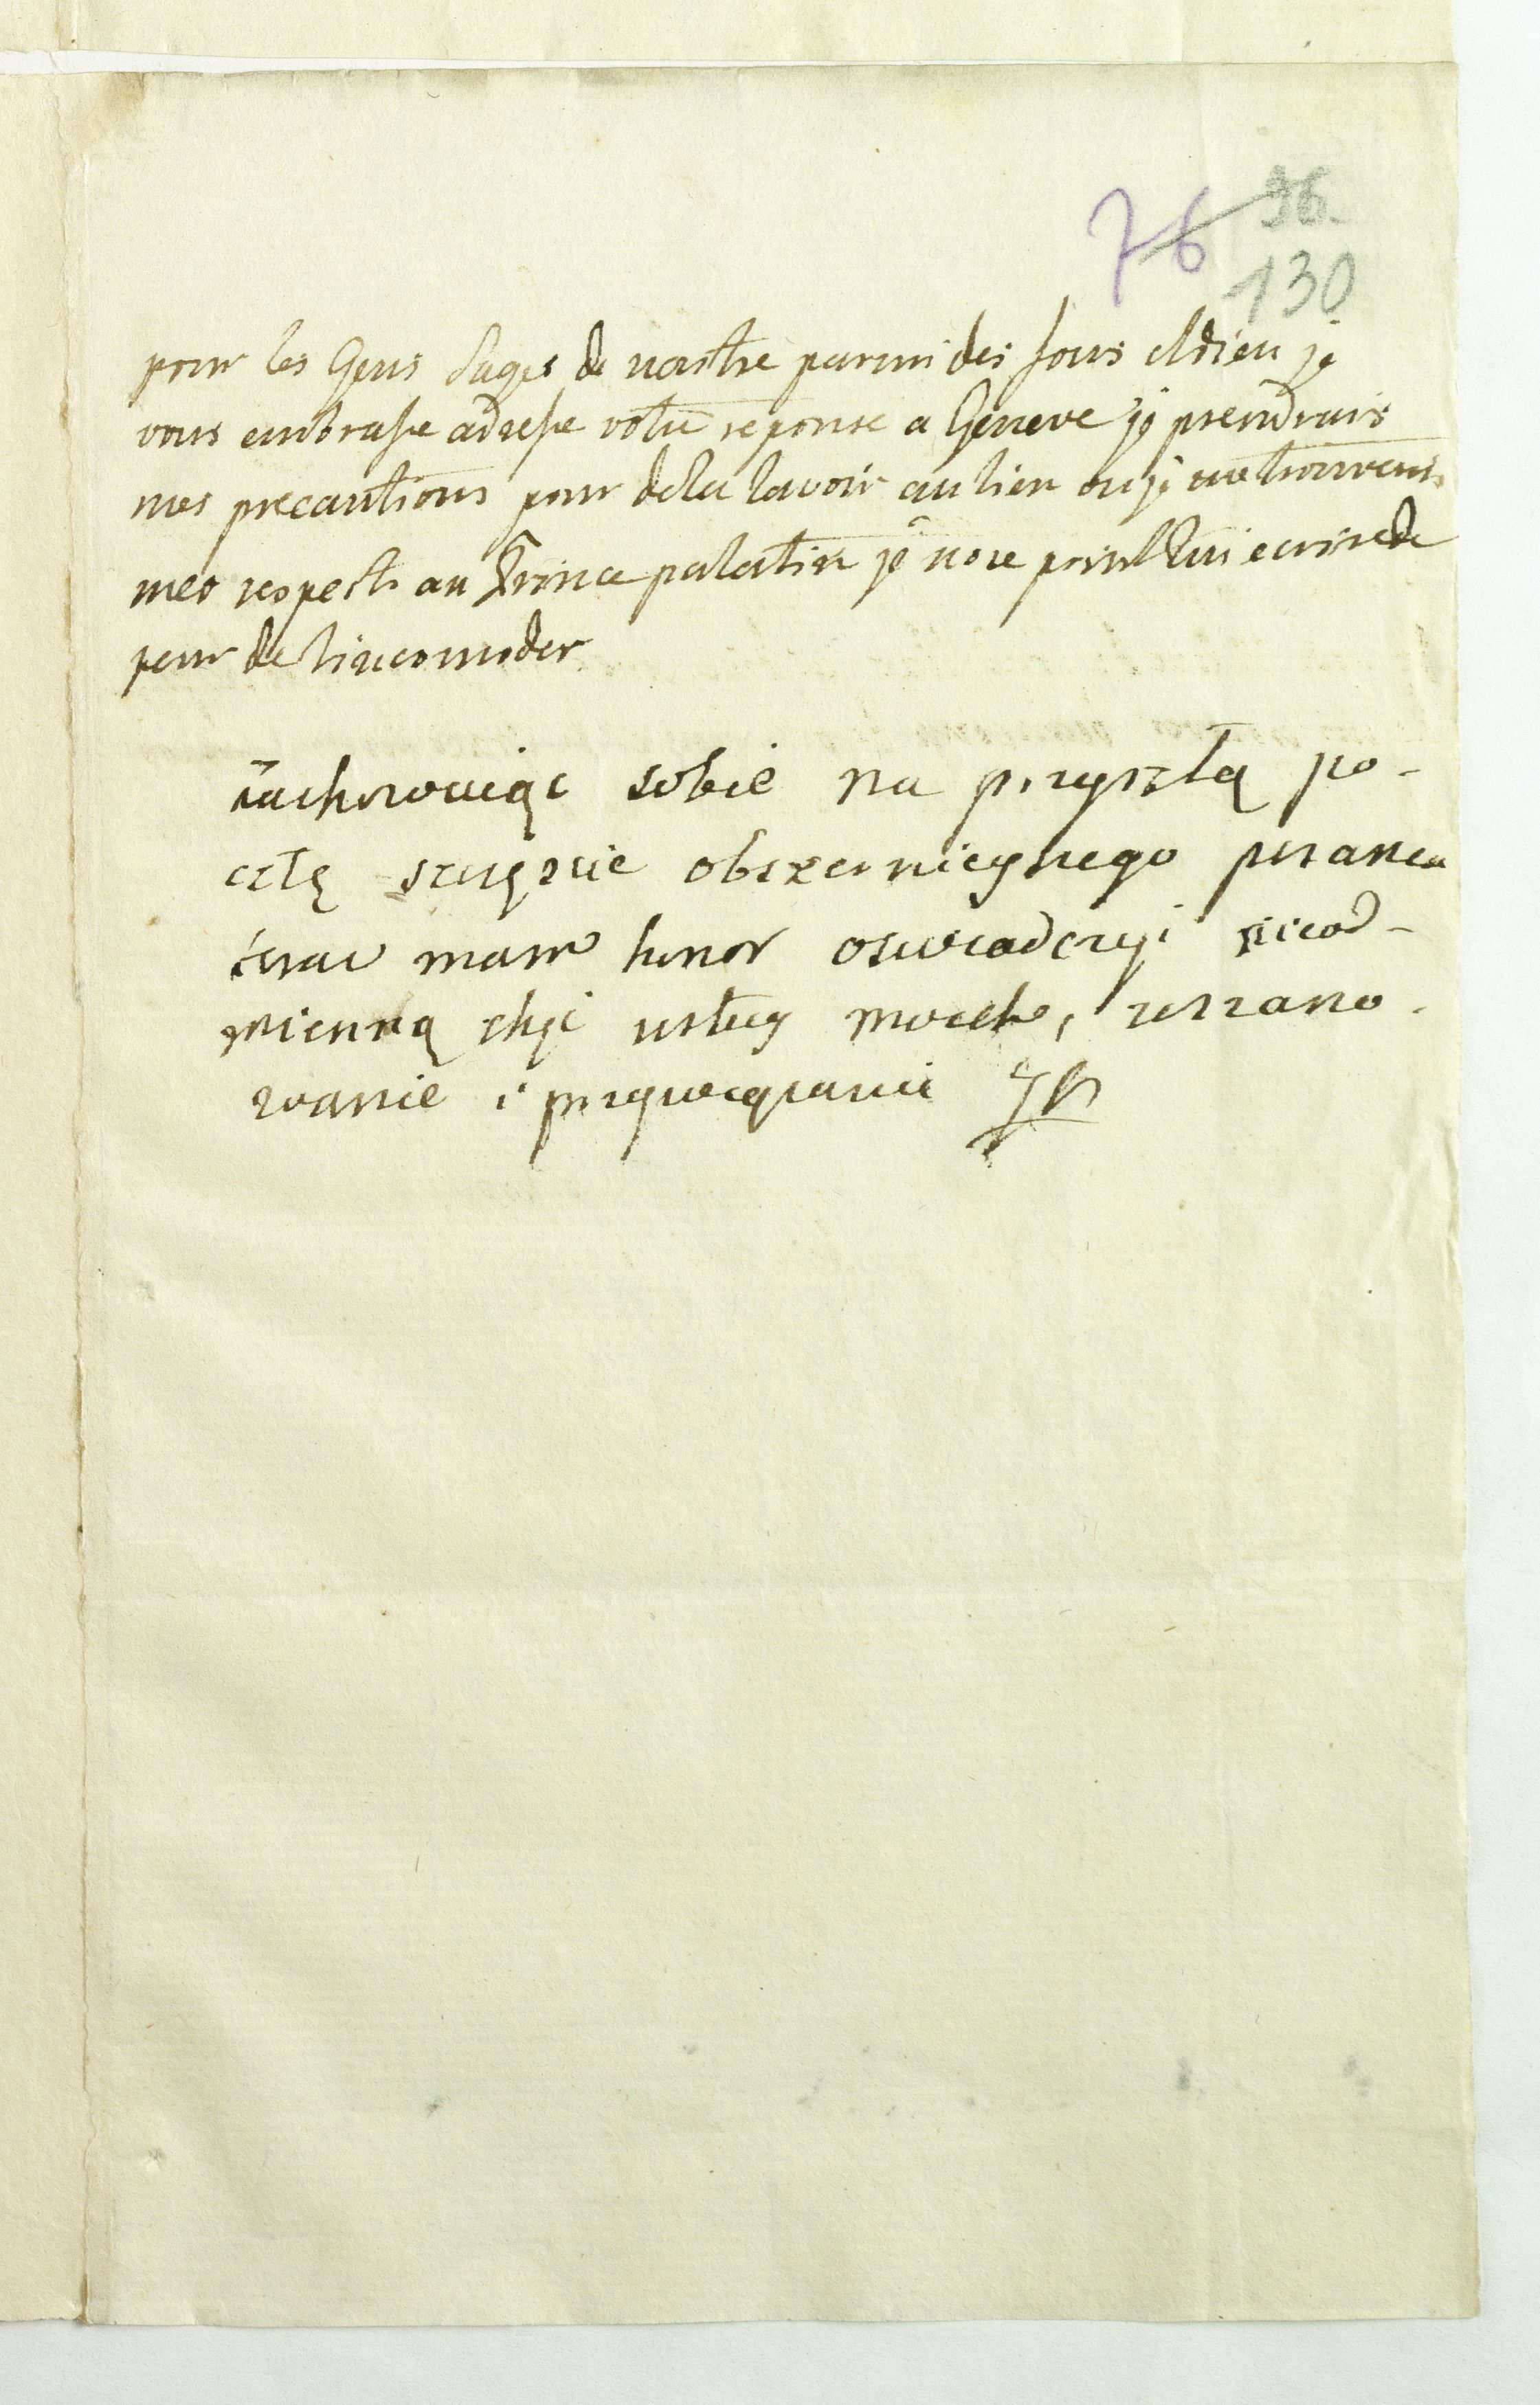 76 96.
130
pour les Gens Sages de naistre parmi des fous Adieu je
vous embrasse adresse votre reponse a Geneve je prendrais
mes precautions pour de la lavoir au lieu ou je me trouverais
mes respects au Prince palatin je nose point lui ecrire de
peur de lincomoder
zachowuiąc sobie na przyszłą po-
cztę szczęscie obszernieyszego
mam honor oswiadczyć nieod-
mienną chęć usług moich,
wanie i przywiązanie